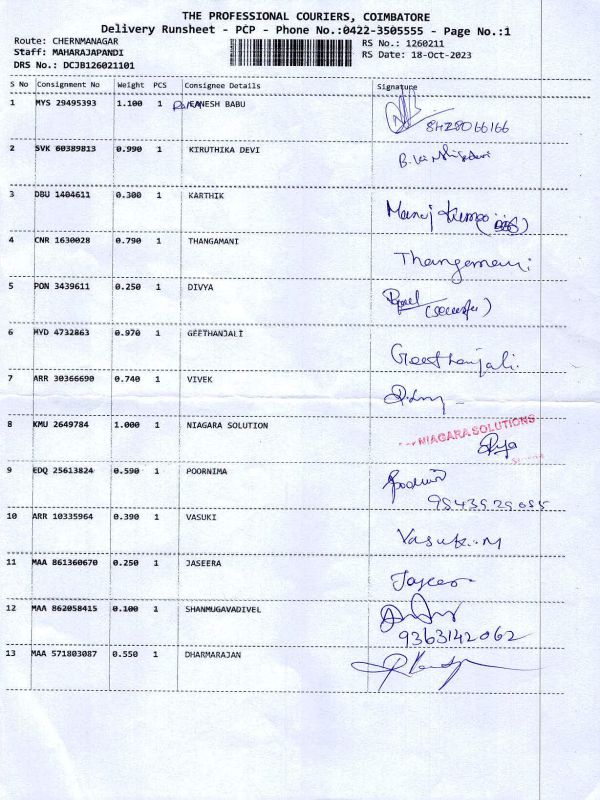 THE PROFESSIONAL COURIERS, COIMBATORE
Delivery Runsheet - PCP - Phone No.:0422-3505555 - Page No.:1
Route: CHERNMANAGAR
RS No.: 1260211
Staff: MAHARAJAPANDI
RS Date: 18-Oct-2023
DRS No.: DCJB126021101
S No Consignment No Weight PCS Consignee Details Signature
1 MYS 29495393 1.100 1 GANESH BABU
8428066166
2 SVK 60389813 0.990 1 KIRUTHIKA DEVI
3 DBU 1404611 0.300 1 KARTHIK Manoj Kumar
4 CNR 1630028 0.790 1 THANGAMANI Thangamani
5 PON 3439611 0.250 1 DIVYA
6 MYD 4732863 0.970 1 GEETHANJALI Geethanjali.
7 ARR 30366690 0.740 1 VIVEK
8 KMU 2649784 1.000 1 NIAGARA SOLUTION NIAGARA SOLUTIONS
9 EDQ 25613824 0.590 1 POORNIMA
10 ARR 10335964 0.390 1 VASUKI Vasuki.M
11 MAA 861360670 0.250 1 JASEERA
12 MAA 862058415 0.100 1 SHANMUGAVADIVEL
9363142062
13 MAA 571803087 0.550 1 DHARMARAJAN